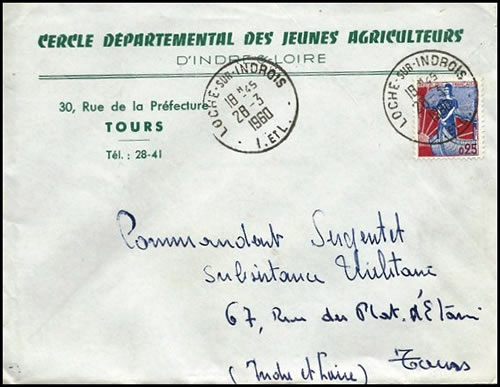 CERCLE DÉPARTEMENTAL DES JEUNES AGRICULTEURS
D'INDRE & LOIRE
30, Rue de la Préfecture
TOURS
Tél. : 28-41
LOCHÉ-SUR-INDROIS
18 H 45
28-3
1960
I. ET L.
LOCHÉ-SUR-INDROIS
18 H 45
1960
0,25
Commandant Sergentet
Subsistance Militaire
67, Rue des Plat. d'Étain
(Indre et Loire) Tours